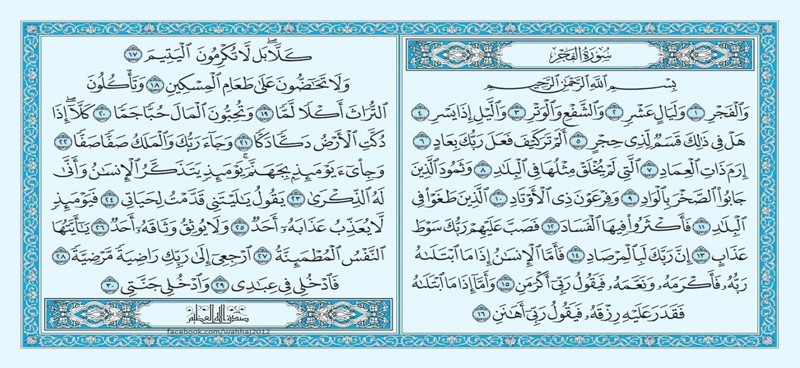 سُورَةُ الفَجْرِ
بِسْمِ ٱللَّهِ ٱلرَّحْمَٰنِ ٱلرَّحِيمِ
وَٱلْفَجْرِ ١ وَلَيَالٍ عَشْرٍ ٢ وَٱلشَّفْعِ وَٱلْوَتْرِ ٣ وَٱلَّيْلِ إِذَا يَسْرِ ٤
هَلْ فِي ذَٰلِكَ قَسَمٌ لِّذِي حِجْرٍ ٥ أَلَمْ تَرَ كَيْفَ فَعَلَ رَبُّكَ بِعَادٍ ٦
إِرَمَ ذَاتِ ٱلْعِمَادِ ٧ ٱلَّتِي لَمْ يُخْلَقْ مِثْلُهَا فِي ٱلْبِلَٰدِ ٨ وَثَمُودَ ٱلَّذِينَ
جَابُوا۟ ٱلصَّخْرَ بِٱلْوَادِ ٩ وَفِرْعَوْنَ ذِي ٱلْأَوْتَادِ ١٠ ٱلَّذِينَ طَغَوْا۟ فِي
ٱلْبِلَٰدِ ١١ فَأَكْثَرُوا۟ فِيهَا ٱلْفَسَادَ ١٢ فَصَبَّ عَلَيْهِمْ رَبُّكَ سَوْطَ
عَذَابٍ ١٣ إِنَّ رَبَّكَ لَبِٱلْمِرْصَادِ ١٤ فَأَمَّا ٱلْإِنسَٰنُ إِذَا مَا ٱبْتَلَىٰهُ
رَبُّهُۥ فَأَكْرَمَهُۥ وَنَعَّمَهُۥ فَيَقُولُ رَبِّيٓ أَكْرَمَنِ ١٥ وَأَمَّآ إِذَا مَا ٱبْتَلَىٰهُ
فَقَدَرَ عَلَيْهِ رِزْقَهُۥ فَيَقُولُ رَبِّيٓ أَهَٰنَنِ ١٦
كَلَّا ۖ بَل لَّا تُكْرِمُونَ ٱلْيَتِيمَ ١٧
وَلَا تَحَٰٓضُّونَ عَلَىٰ طَعَامِ ٱلْمِسْكِينِ ١٨ وَتَأْكُلُونَ
ٱلتُّرَاثَ أَكْلًا لَّمًّا ١٩ وَتُحِبُّونَ ٱلْمَالَ حُبًّا جَمًّا ٢٠ كَلَّآ ۖ إِذَا
دُكَّتِ ٱلْأَرْضُ دَكًّا دَكًّا ٢١ وَجَآءَ رَبُّكَ وَٱلْمَلَكُ صَفًّا صَفًّا ٢٢
وَجِا۟ىٓءَ يَوْمَئِذٍۭ بِجَهَنَّمَ ۚ يَوْمَئِذٍ يَتَذَكَّرُ ٱلْإِنسَٰنُ وَأَنَّىٰ
لَهُ ٱلذِّكْرَىٰ ٢٣ يَقُولُ يَٰلَيْتَنِي قَدَّمْتُ لِحَيَاتِي ٢٤ فَيَوْمَئِذٍ
لَّا يُعَذِّبُ عَذَابَهُۥٓ أَحَدٌ ٢٥ وَلَا يُوثِقُ وَثَاقَهُۥٓ أَحَدٌ ٢٦ يَٰٓأَيَّتُهَا
ٱلنَّفْسُ ٱلْمُطْمَئِنَّةُ ٢٧ ٱرْجِعِيٓ إِلَىٰ رَبِّكِ رَاضِيَةً مَّرْضِيَّةً ٢٨
فَٱدْخُلِي فِي عِبَٰدِي ٢٩ وَٱدْخُلِي جَنَّتِي ٣٠
صدق الله العظيم
facebook.com/wahhaj2012